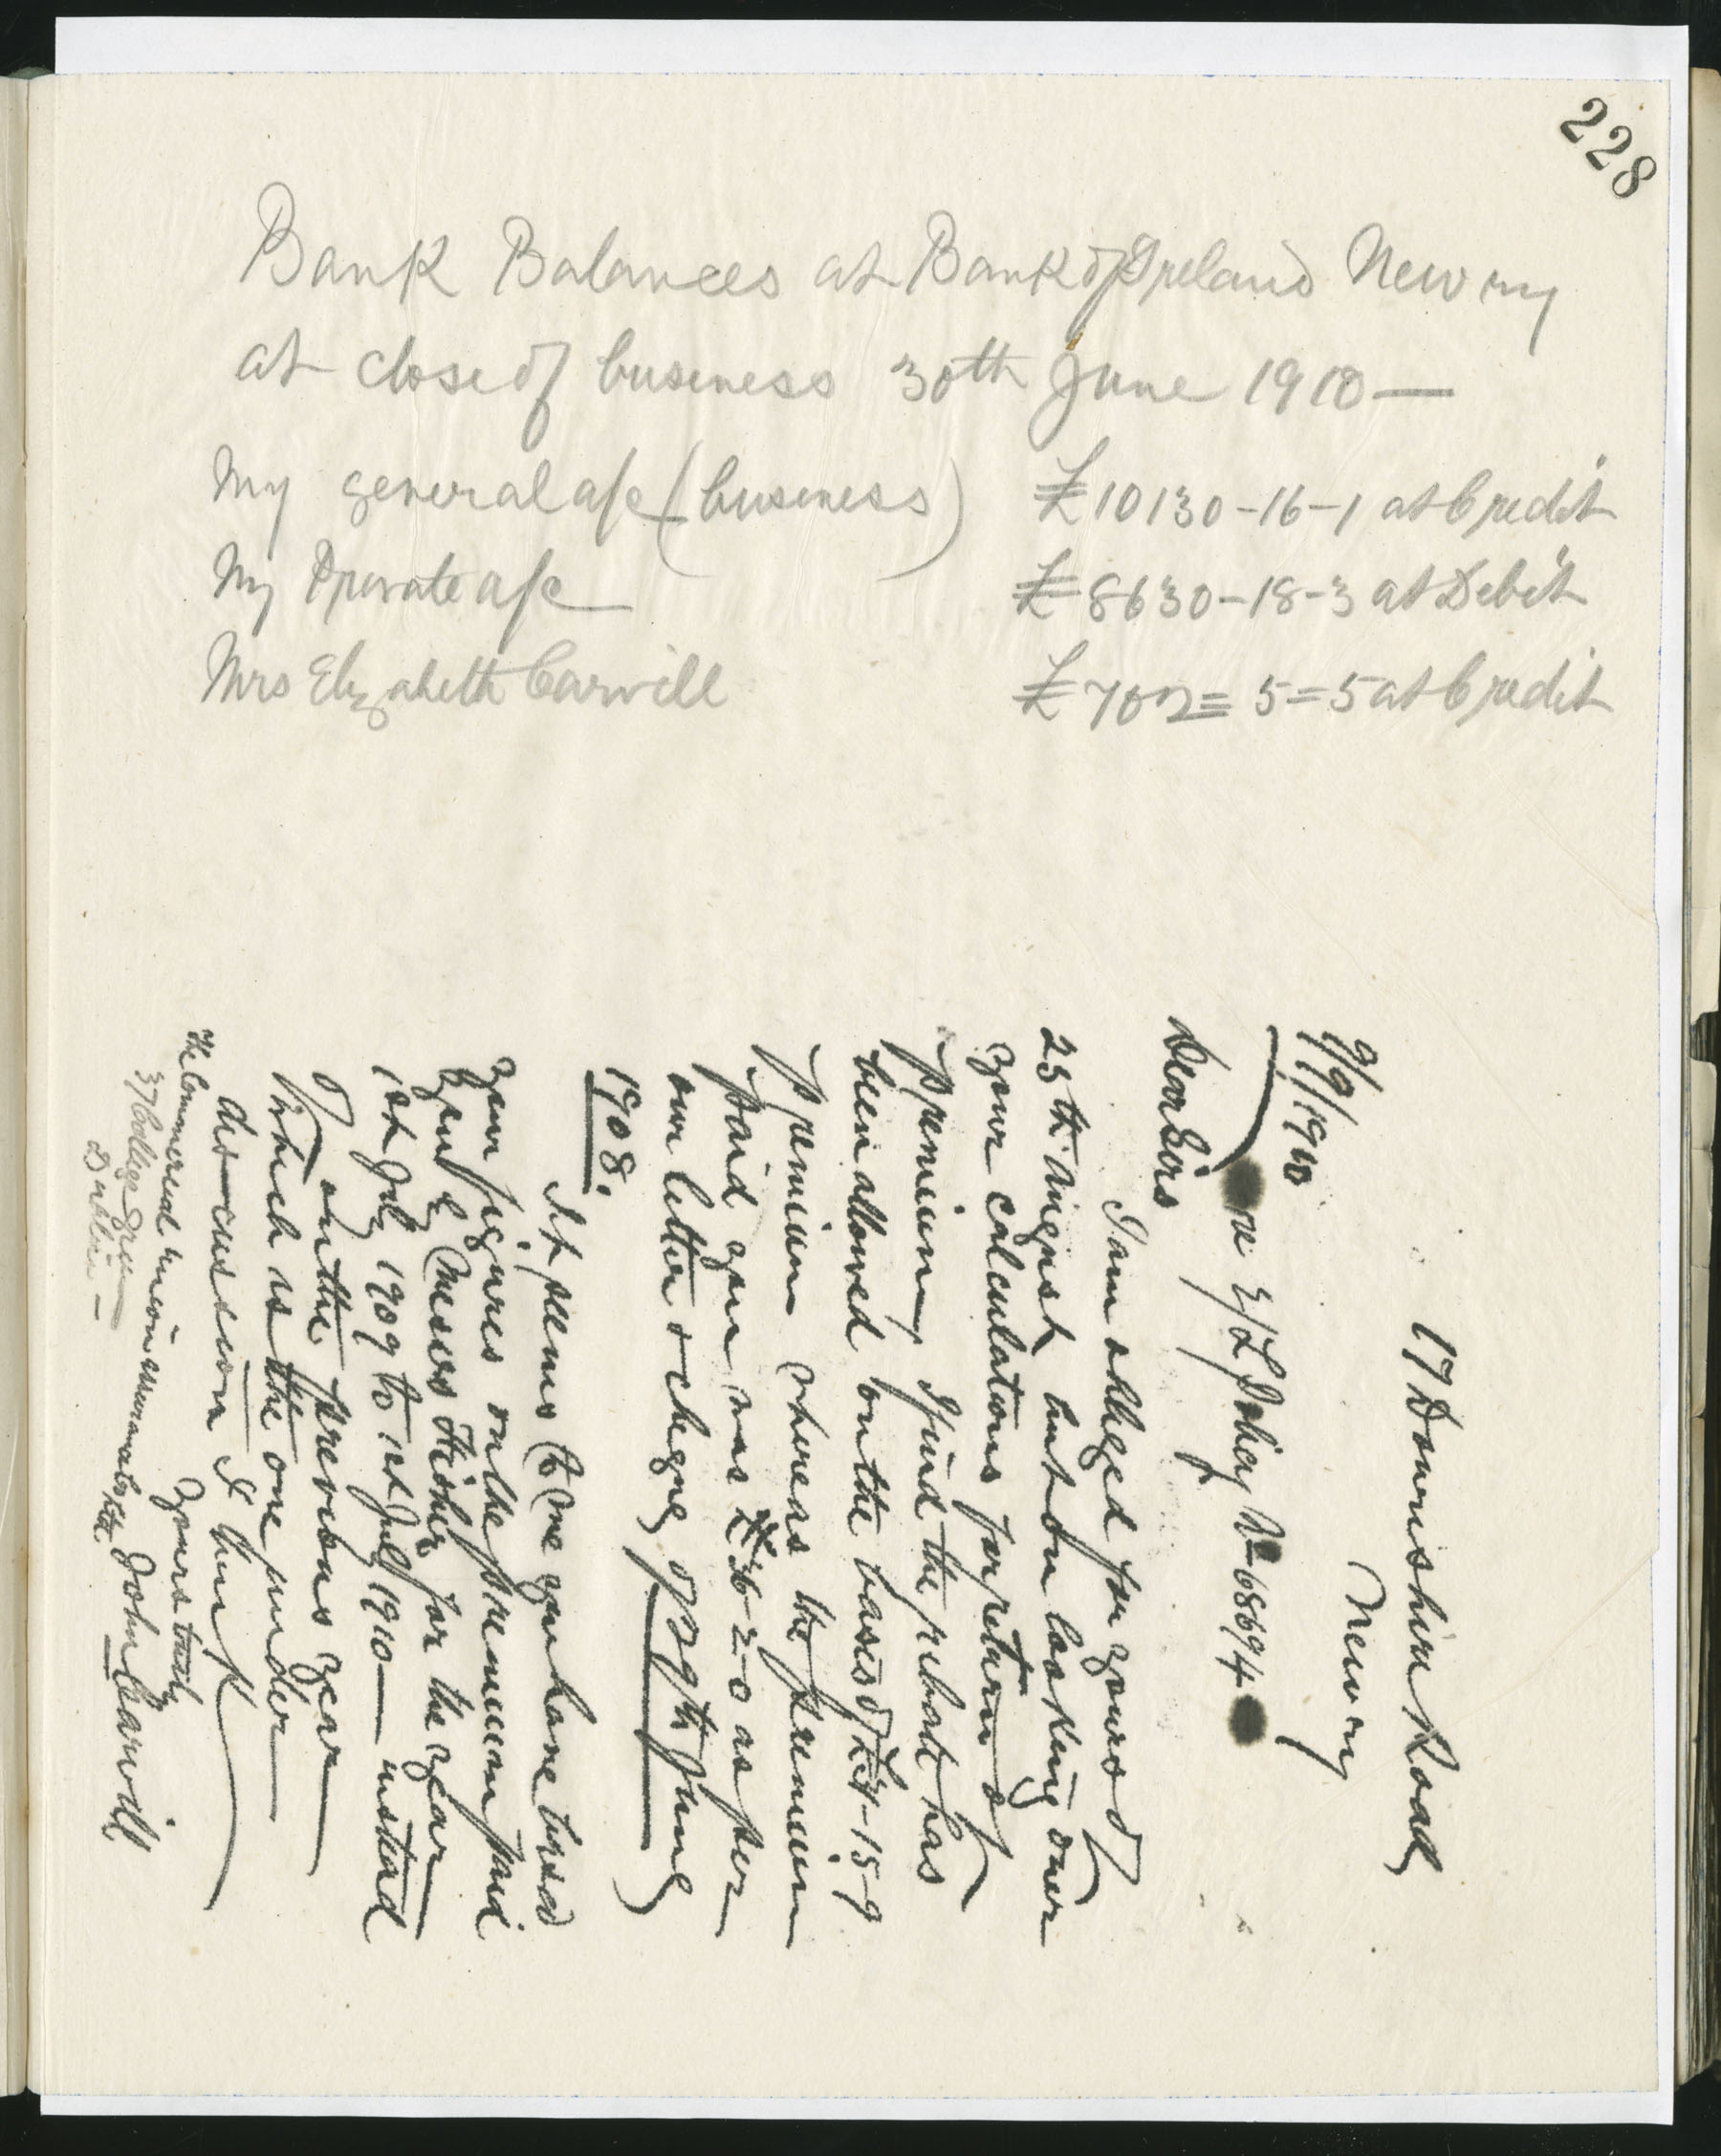 228
Bank Balances at Bank of Ireland Newry
at close of business 30th June 1910 —
My general a/c (business) £10130-16-1 at Credit
My Private a/c £8630-18-3 at Debit
Mrs Elizabeth Carvill £702=5=5 at Credit
17 Downshire Road
Newry
9/9/1910
re E/L Policy No 68694
Dear Sirs
I am obliged for yours of
25th August but on looking over
your calculations for return of
premium, I find the rebate has
been allowed on the basis of £4-15-9
premium whereas the premium
paid you was £36-2-0 as per
our letter & cheque of 29th June
1908.
It seems to me you have based
your figures on the premium paid
by Messrs Fisher for the year
1st July 1909 to 1st July 1910 — instead
of on the previous year
which is the one under
discussion I think
Yours truly
John Carvill
The Commercial Union Assurance Co Ltd
37 College Green
Dublin —